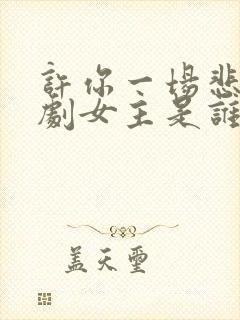 許你一場悲
劇女主是誰
蓋天璽